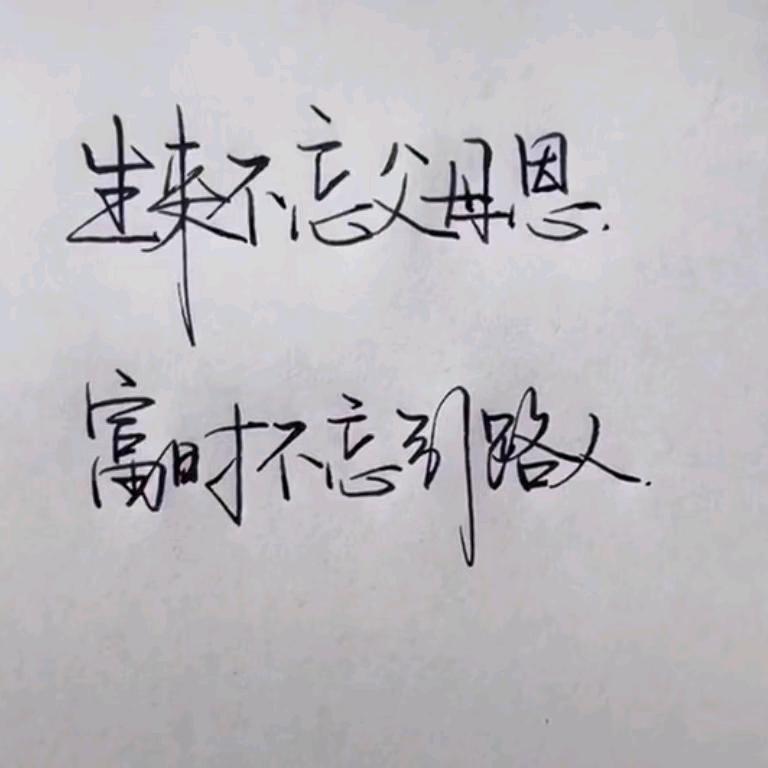 生来不忘父母恩.
富时不忘引路人.